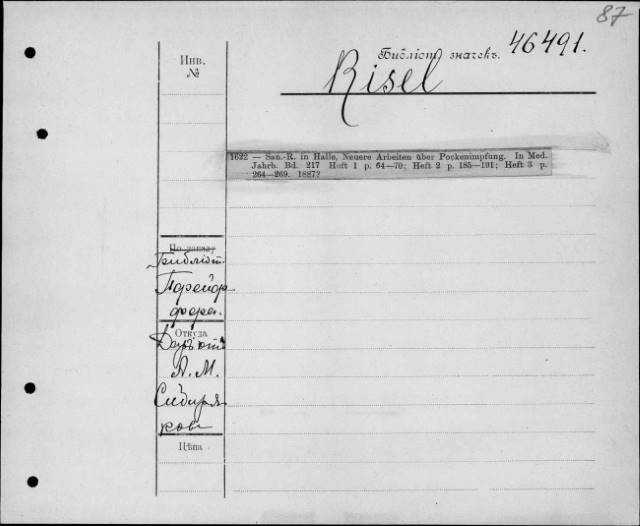 87
Инв.
№
Библіот значекъ. 46491.
Risel
1622 — San.-R. in Halle, Neuere Arbeiten über Pockenimpfung. In Med.
Jahrb. Bd. 217 Heft 1 p. 64—70; Heft 2 p. 185—191; Heft 3 p.
264—269. 1887?
Библіот.
Пфейф
фера.
Откуда
Даръ отъ
А. М.
Сибиря
ков
Цѣна